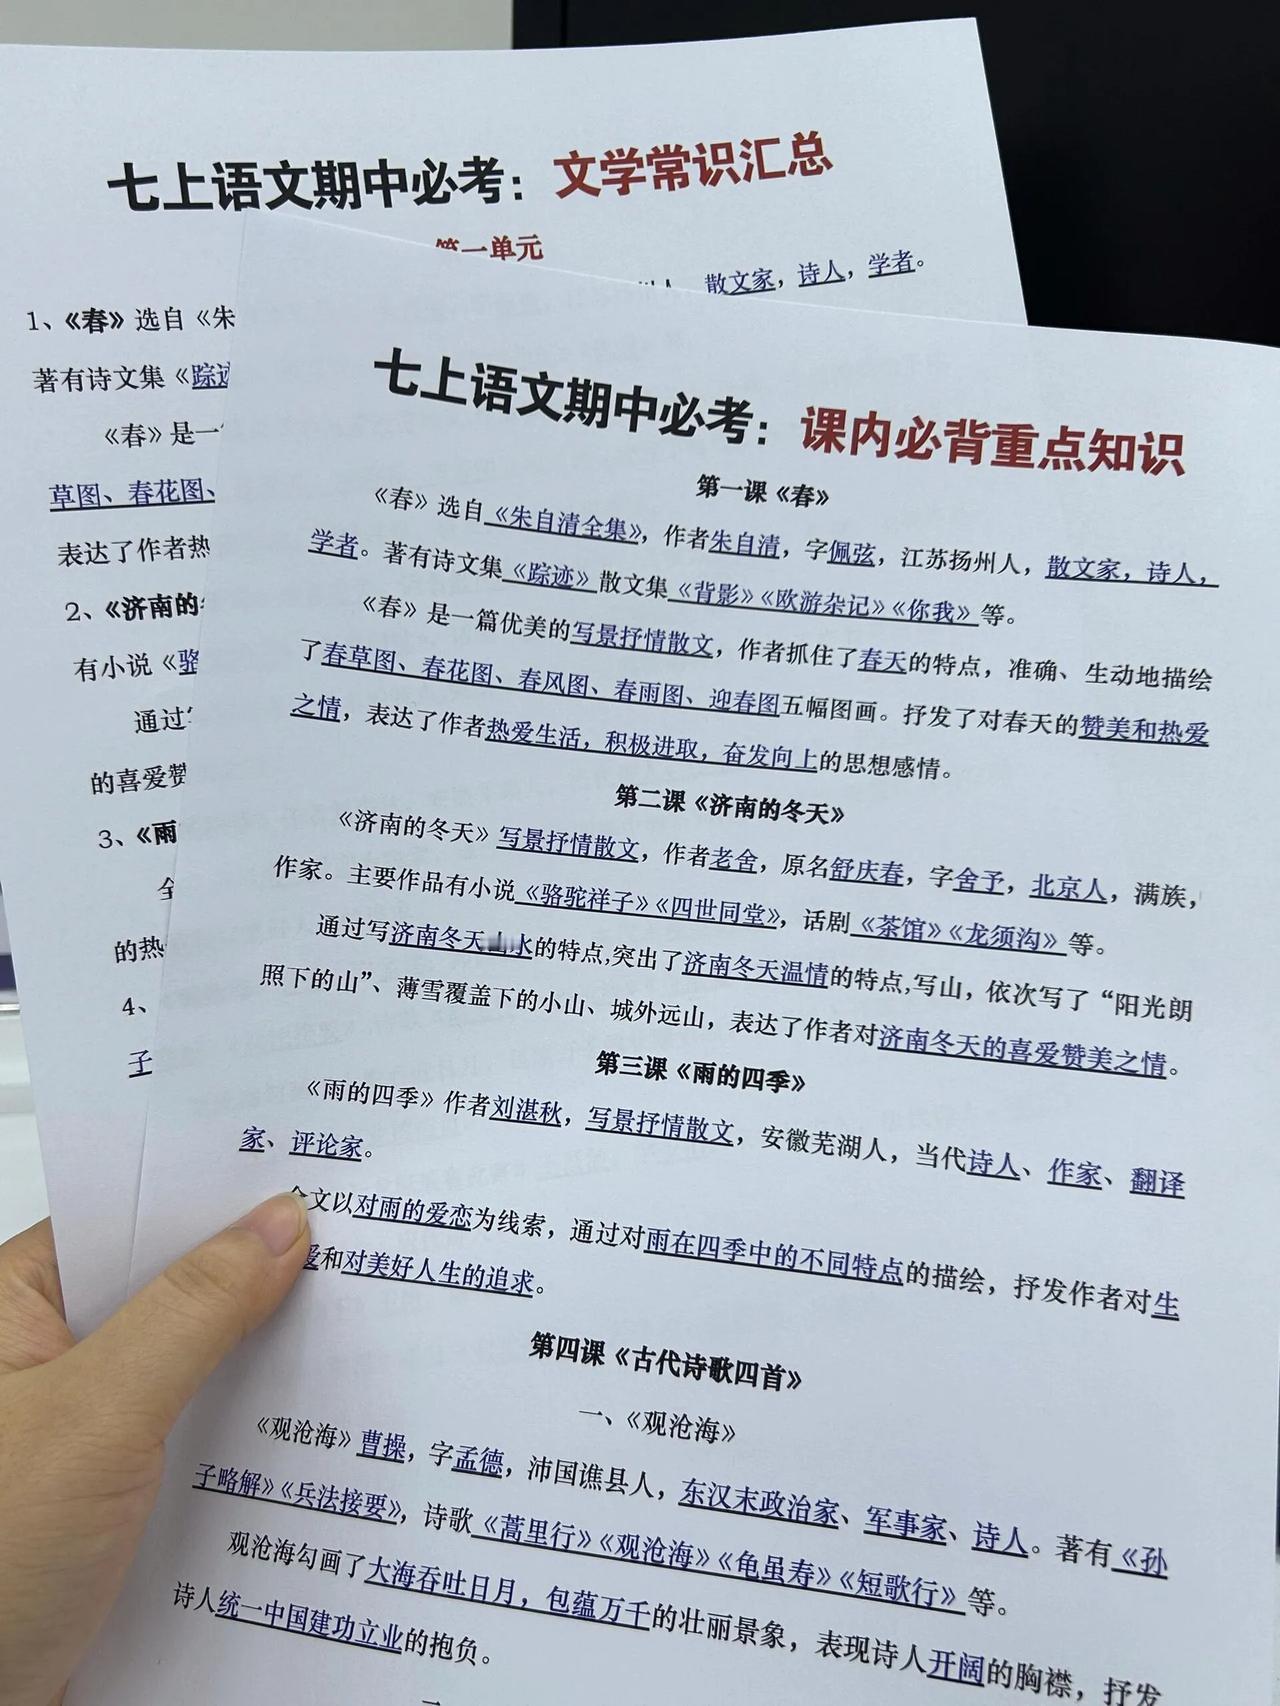 七上语文期中必考：文学常识汇总
第一单元
1、《春》选自《朱
人，散文家，诗人，学者。
著有诗文集《踪迹
《春》是一
草图、春花图、
表达了作者热
2、《济南的
有小说《骆
通过
的喜爱赞
3、《雨
的热
4、
子
七上语文期中必考：课内必背重点知识
第一课《春》
《春》选自《朱自清全集》，作者朱自清，字佩弦，江苏扬州人，散文家，诗人，
学者。著有诗文集《踪迹》散文集《背影》《欧游杂记》《你我》等。
《春》是一篇优美的写景抒情散文，作者抓住了春天的特点，准确、生动地描绘
了春草图、春花图、春风图、春雨图、迎春图五幅图画。抒发了对春天的赞美和热爱
之情，表达了作者热爱生活，积极进取，奋发向上的思想感情。
第二课《济南的冬天》
《济南的冬天》写景抒情散文，作者老舍，原名舒庆春，字舍予，北京人，满族，
作家。主要作品有小说《骆驼祥子》《四世同堂》，话剧《茶馆》《龙须沟》等。
通过写济南冬天山水的特点,突出了济南冬天温情的特点,写山，依次写了“阳光朗
照下的山”、薄雪覆盖下的小山、城外远山，表达了作者对济南冬天的喜爱赞美之情。
第三课《雨的四季》
《雨的四季》作者刘湛秋，写景抒情散文，安徽芜湖人，当代诗人、作家、翻译
家、评论家。
全文以对雨的爱恋为线索，通过对雨在四季中的不同特点的描绘，抒发作者对生
爱和对美好人生的追求。
第四课《古代诗歌四首》
一、《观沧海》
《观沧海》曹操，字孟德，沛国谯县人，东汉末政治家、军事家、诗人。著有《孙
子略解》《兵法接要》，诗歌《蒿里行》《观沧海》《龟虽寿》《短歌行》等。
观沧海勾画了大海吞吐日月，包蕴万千的壮丽景象，表现诗人开阔的胸襟，抒发
诗人统一中国建功立业的抱负。